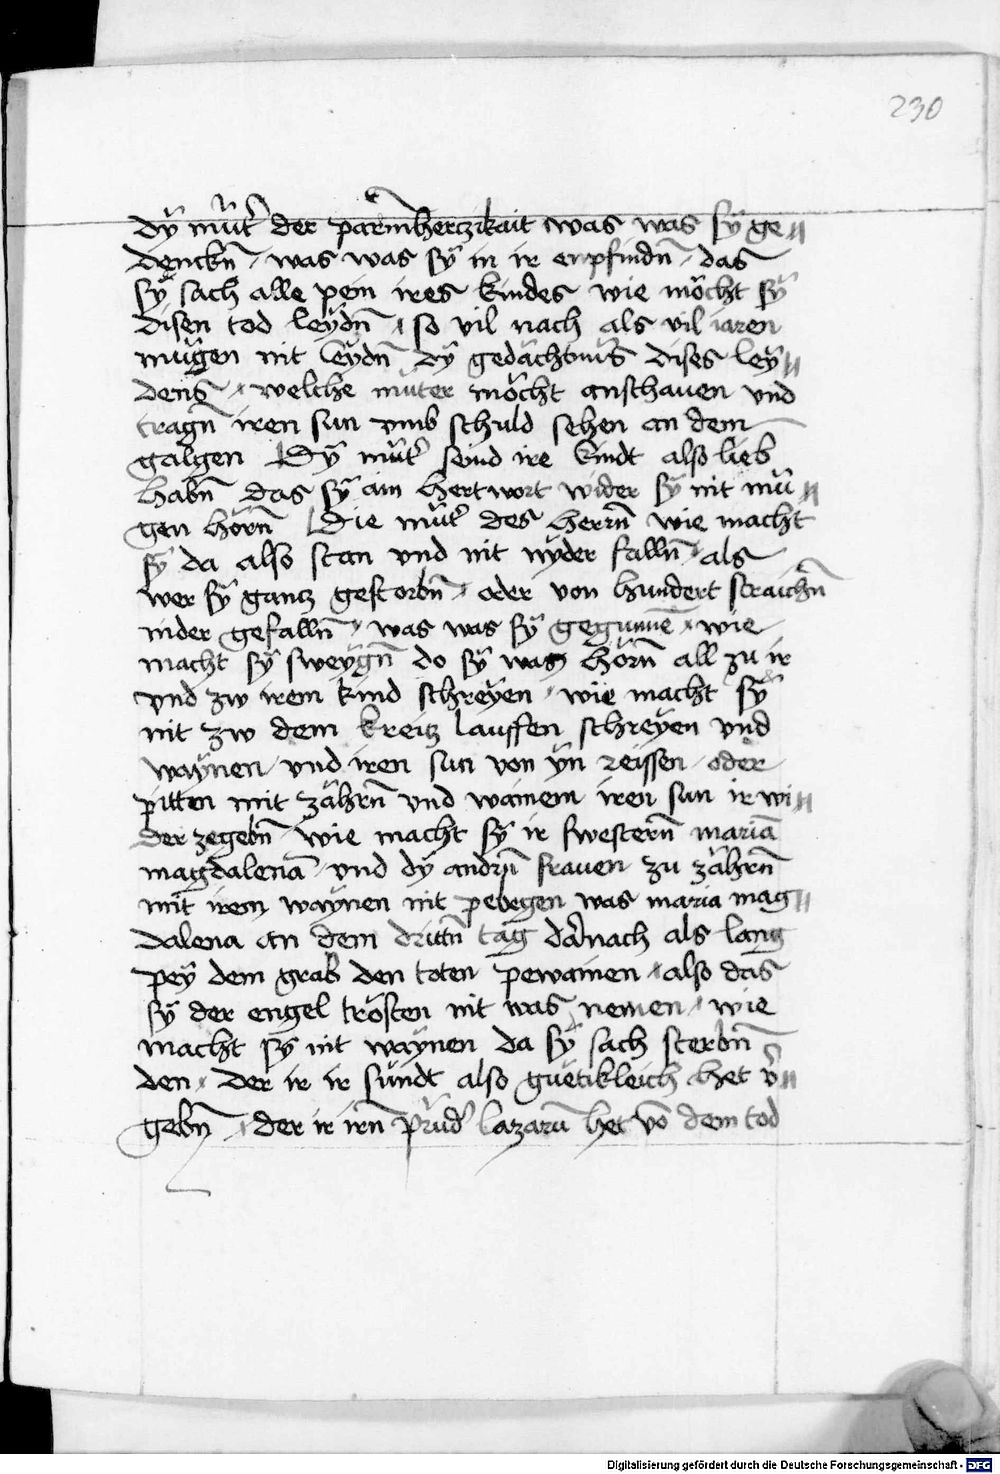 230
dÿ můtʼ der parmherczikait was was sÿ ge⸗
denckn̄ / was was sÿ in ir enpfindn̄ / das
sÿ sach alle pein ires kindes wie möcht sÿ
disen tod leÿdn̄ / so vil nach als vil iaren
mügen nit leÿdn̄ dÿ gedächtnüs dises leÿ⸗
dens / welche müter möcht anschauen vnd
tragn̄ iren sun vmb schuld sehen an dem
galgen Dÿ mütʼ seind ire kindt also lieb
habn̄ das sÿ ain hertwort wider sÿ nit mü⸗
gen hörn̄ Die mütʼ des herrn̄ wie macht
sÿ da also stan vnd nit nÿder falln̄ / als
wer sÿ gantz gestorbn̄ / oder von hundert straichn̄
nider gefalln̄ / was was sÿ gegunnē / wie
macht sÿ sweÿgn̄ do sÿ was hörn̄ all zu ir
vnd zw irem kind schreÿen / wie macht sÿ
nit zw dem kreitz lauffen schreÿen vnd
waÿnen / vnd iren sun von ÿn reissen / oder
pitten mit zährn̄ vnd wainem iren sun ir wi⸗
der zegebn̄ / wie macht sÿ ir swestern̄ mariā
magdalenā / vnd dÿ andrn̄ frauen zu zährn̄
mit irem waÿnen nit pebegen was maria mag⸗
dalena an dem drittn̄ tag darnach als lang
peÿ dem grab den toten pewainen / also das
sÿ der engel trösten nit was nemen / wie
macht sÿ nit waÿnen da sÿ sach sterbn̄
den / der ir ir sündt also guetikleich het v̄⸗
gebn̄ / der ir irn̄ prüdʼ lazarū het vō dem tod
Digitalisierung gefördert durch die Deutsche Forschungsgemeinschaft - DFG